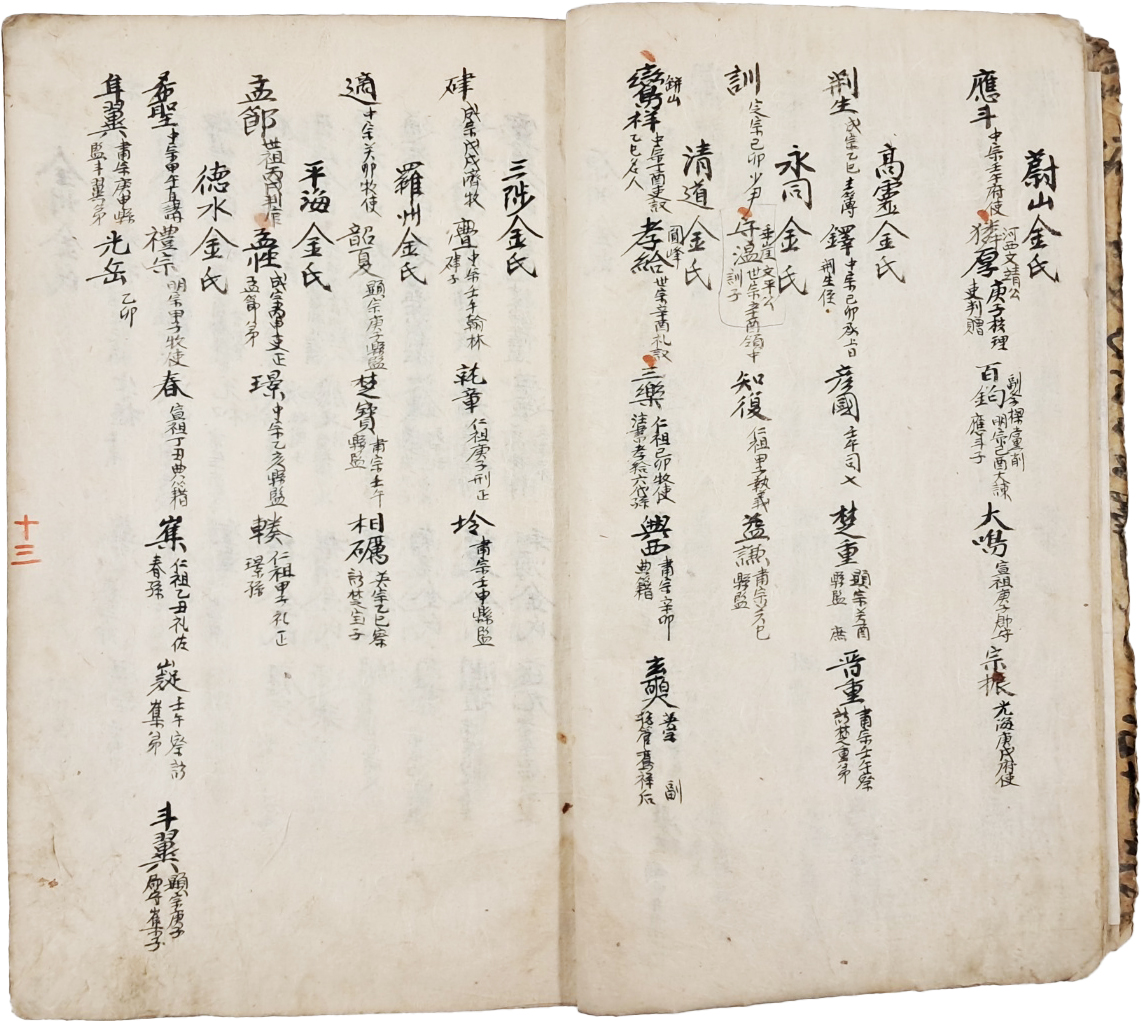 蔚山金氏
應斗 中宗壬午府使 厚 河西文靖公 庚子校理 吏判贈 百鈞 副學樑黨削 明宗己酉大諫 應斗子 大鳴 宣祖庚子郎守 宗振 光海庚戌府使
高靈金氏
荆生 成宗乙巳主簿 鐸 中宗己卯及上日 荆生侄 彦國 壬午司七 楚重 顯宗癸酉縣監 庶 晋重 肅宗壬午察訪楚重弟
永同金氏
訓 定宗己卯少尹 守温 乖崖文平公 世宗辛酉領中 訓子 知復 仁祖甲子執義 益謙 肅宗癸巳縣監
清道金氏
鸞祥 缾山 中宗丁酉吏議 乙巳名人 孝給 圓峰 世宗辛酉礼議 三樂 仁祖己卯牧使 注乘孝給六代孫 興西 肅宗辛卯典籍 英宗 鸞祥后 副
三陟金氏
硉 成宗戊戌濟牧 中宗壬午翰林 硉子 乾章 仁祖庚子刑正 坽 肅宗壬申縣監
羅州金氏
適 中宗癸卯牧使 韶夏 顯宗庚子縣監 楚寶 肅宗壬午縣監 相礪 英宗乙巳察訪楚宝子
平海金氏
孟節 世祖丙戌判作 孟性 成宗丙申吏正 孟節弟 璟 中宗乙亥縣監 轃 仁祖甲子礼正 璟孫
徳水金氏
希聖 中宗甲午直講 禮宗 明宗甲子牧使 春 宣祖丁丑典籍 嶲 仁祖乙丑礼佐 春孫 嶷 壬午察訪 嶲弟 斗翼 顯宗庚子郡守嶲子
𦔳翼 肅宗庚申縣監斗翼弟 光岳 乙卯
十三